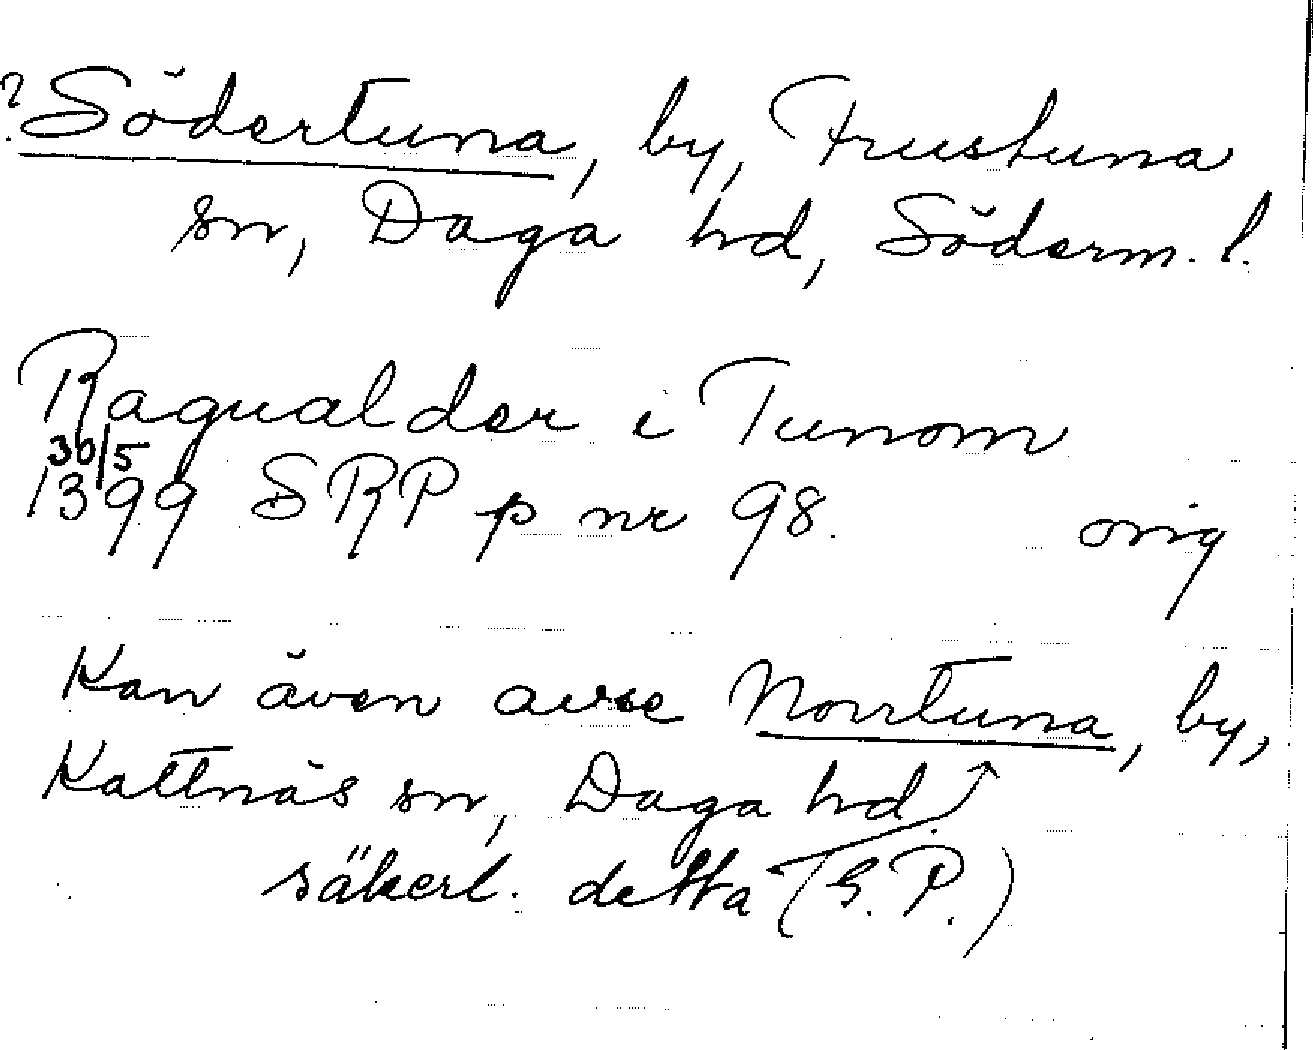 ? Södertuna, by, Frustuna
sn, Daga hd, Söderm. l.
Ragualder i Tunom
30/5
1399 SRP p nr 98. orig
Kan även avse Norrtuna, by,
Kattnäs sn, Daga hd.
säkerl. detta (G.P.)